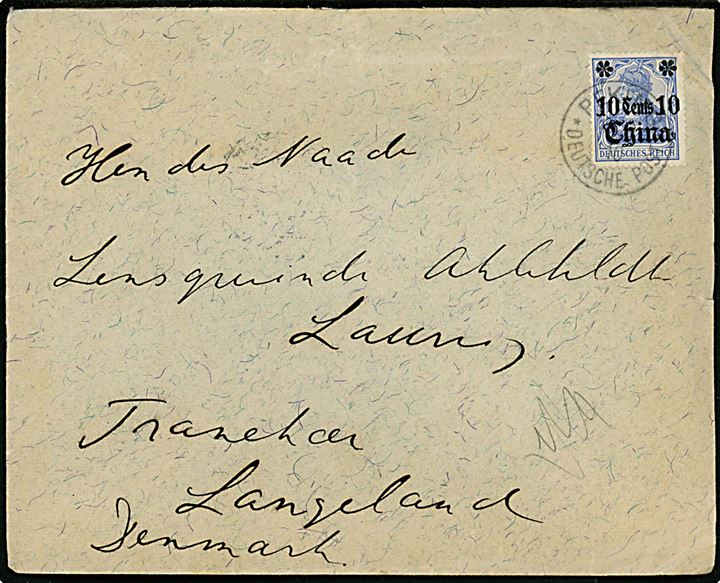 PEKING
* DEUTSCHE POST
10 Cents 10
China
DEUTSCHES REICH
Hendes Naade
Lensgrevinde Ahlefeldt
Laurvig.
Tranekær
Langeland
Denmark.